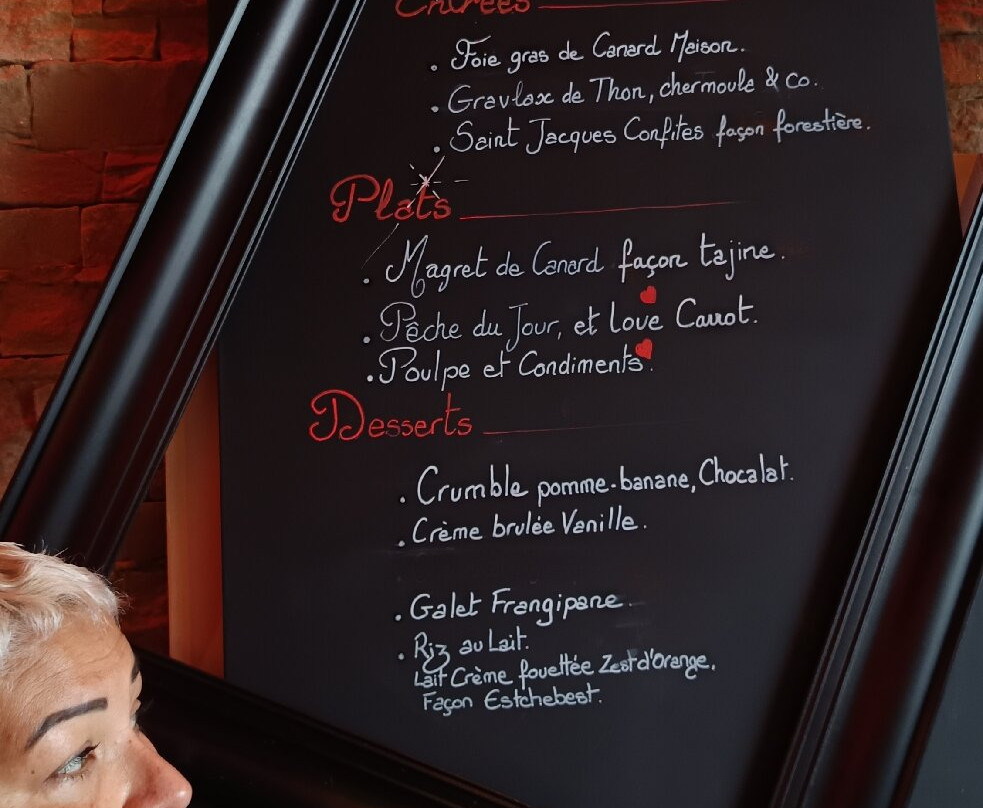 Entrées
. Foie gras de Canard Maison.
. Gravlax de Thon, chermoula & Co.
. Saint Jacques Confites façon forestière.
Plats
. Magret de Canard façon tajine.
. Pêche du Jour, et Love Carrot.
. Poulpe et Condiments.
Desserts
. Crumble pomme-banane, Chocalat.
. Crème brulée Vanille.
. Galet Frangipane.
. Riz au Lait.
Lait Crème fouettée Zest d'Orange,
Façon Estchebest.